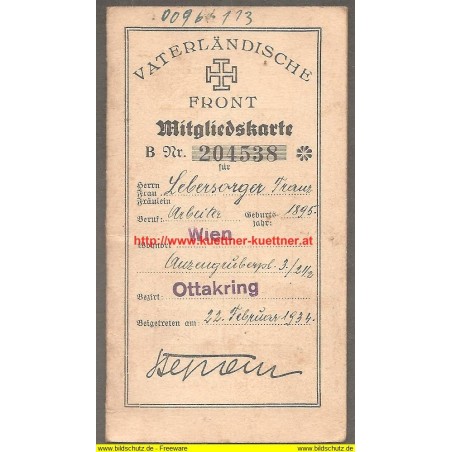 0096 113
VATERLÄNDISCHE
FRONT
Mitgliedskarte
B Nr. 204538
für
Herrn
Frau Lebersorger Franz
Fräulein
Beruf: Arbeiter Geburtsjahr: 1895.
www.kuettner-kuettner.at
Wien
Wohnort
Anzengruberpl. 3/21/2
Ottakring
Bezirk:
Beigetreten am: 22. Februar 1934.
www.bildschutz.de - Freeware
www.bildschutz.de